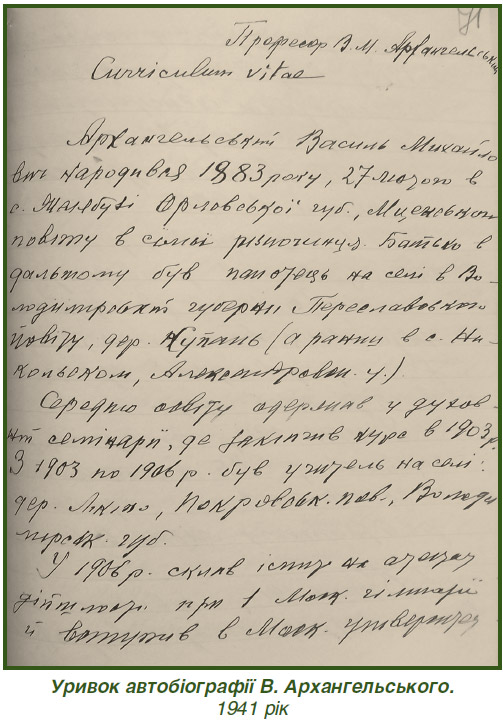 Професор В. М. Архангельський
Curriculum vitae
Архангельський Василь Михайло
вич народився 1883 року, 27 лютого в
с. Орловської губ., Мценського
повіту в сімьї різночинця. Батько в
дальшому був панотець на селі в Во-
лодимировській губернії Переславського
повіту, дер. Купань (а раніш в с. Ни-
кольском, Александровськ. у.)
Середню освіту одержав у духов-
ній семінарії, де закінчив курс в 1903 р.
З 1903 по 1906 р. був учитель на селі:
дер. Покровськ. пов., Володи
мирськ. губ.
У 1906 р. склав іспит на атестат
дійшлости при 1 Моск. гімназії
й вступив в Моск. університет
Уривок автобіографії В. Архангельського.
1941 рік